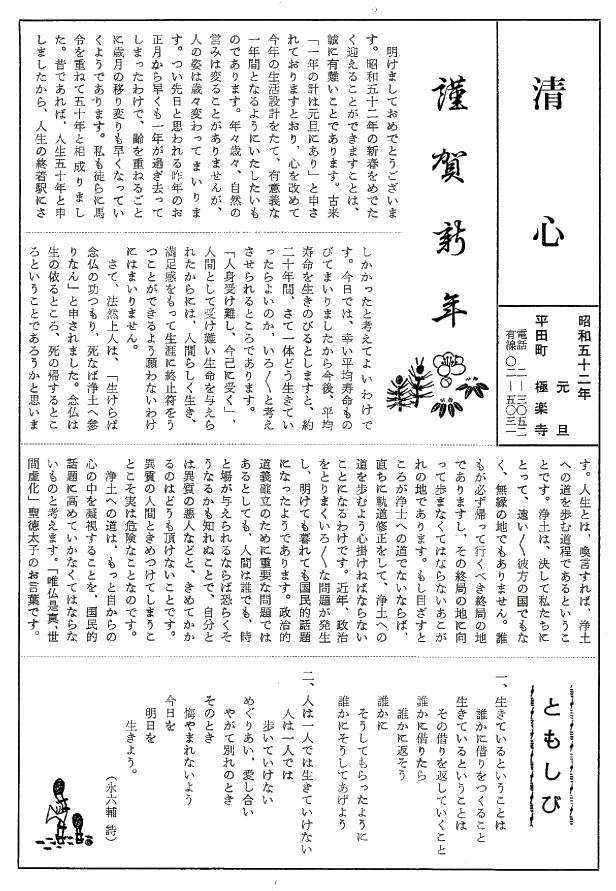 清心
昭和五十二年
元旦
平田町 極楽寺
電話 二―三〇五二
有線 〇二―五〇三一
謹賀新年
明けましておめでとうございま
す。昭和五十二年の新春をめでた
く迎えることができますことは、
誠に有難いことであります。古来
「一年の計は元旦にあり」と申さ
れておりますとおり、心を改めて
今年の生活設計をたて、有意義な
一年間となるようにいたしたいも
のであります。年々歳々、自然の
営みは変ることがありませんが、
人の姿は歳々変わってまいりま
す。つい先日と思われる昨年のお
正月から早くも一年が過ぎ去って
しまったわけで、齢を重ねるごと
に歳月の移り変りも早くなってい
くようであります。私も徒らに馬
令を重ねて五十年と相成りまし
た。昔であれば、人生五十年と申
しましたから、人生の終着駅にさ
しかかったと考えてよいわけで
す。今日では、幸い平均寿命もの
びてまいりましたから今後、平均
寿命を生きのびるとしますと、約
二十年間、さて一体どう生きてい
ったらよいのか、いろ〳〵と考え
させられるところであります。
「人身受け難し、今己に受く」、
人間として受け難い生命を与えら
れたからには、人間らしく生き、
満足感をもって生涯に終止符をう
つことができるよう願わないわけ
にはまいりません。
さて、法然上人は、「生けらば
念仏の功つもり、死なば浄土へ参
りなん」と申されました。念仏は
生の依るところ、死の帰するとこ
ろということであろうかと思いま
す。人生とは、喚言すれば、浄土
への道を歩む道程であるというこ
とです。浄土は、決して私たちに
とって、遠い〳〵彼方の国でもな
く、無縁の地でもありません。誰
もが必ず帰って行くべき終局の地
でありますし、その終局の地に向
って歩まなくてはならないあこが
れの地であります。もし目ざすと
ころが浄土への道でないならば、
直ちに軌道修正をして、浄土への
道を歩むよう心掛けねばならない
ことになるわけです。近年、政治
をとりまくいろ〳〵な問題が発生
し、明けても暮れても国民的話題
になったようであります。政治的
道義確立のために重要な問題では
あるとしても、人間は誰でも、時
と場が与えられるならば恐らくそ
うなるかも知れぬことで、自分と
は異質の悪人などと、きめてかか
るのはどうも頂けないことです。
異質の人間ときめつけてしまうこ
とこそ実は危険なことなのです。
浄土への道は、もっと自からの
心の中を凝視することを、国民的
話題に高めていかなくてはならな
いものと考えます。「唯仏是真、世
間虚化」聖徳太子のお言葉です。
ともしび
一、生きているということは
誰かに借りをつくること
生きているということは
その借りを返していくこと
誰かに借りたら
誰かに返そう
誰かに
そうしてもらったように
誰かにそうしてあげよう
二、人は一人では生きていけない
人は一人では
歩いていけない
めぐりあい、愛し合い
やがて別れのとき
そのとき
悔やまれないよう
今日を
明日を
生きよう。
(永六輔 詩)